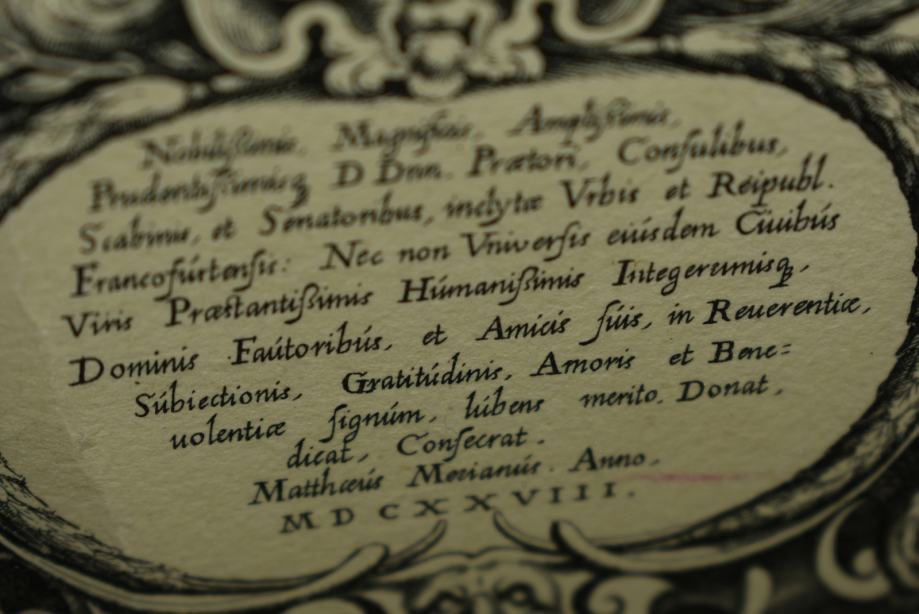 Nobilißimis, Magnificis, Amplißimis,
Prudentißimisq̢ D Dnn. Prætori, Conſulibus,
Scabinis, et Senatoribus, inclytæ Vrbis et Reipubl.
Francofúrtenſis: Nec non Vniverſis eiúsdem Ciuibús
Viris Præstantißimis Húmanißimis Integerrimisq̢,
Dominis Faútoribús, et Amicis ſúis, in Reuerentiæ,
Súbiectionis, Gratitúdinis, Amoris et Bene=
uolentiæ ſignúm, lúbens merito. Donat,
dicat, Conſecrat.
Matthæús Merianús. Anno.
M D C X X V I I I.